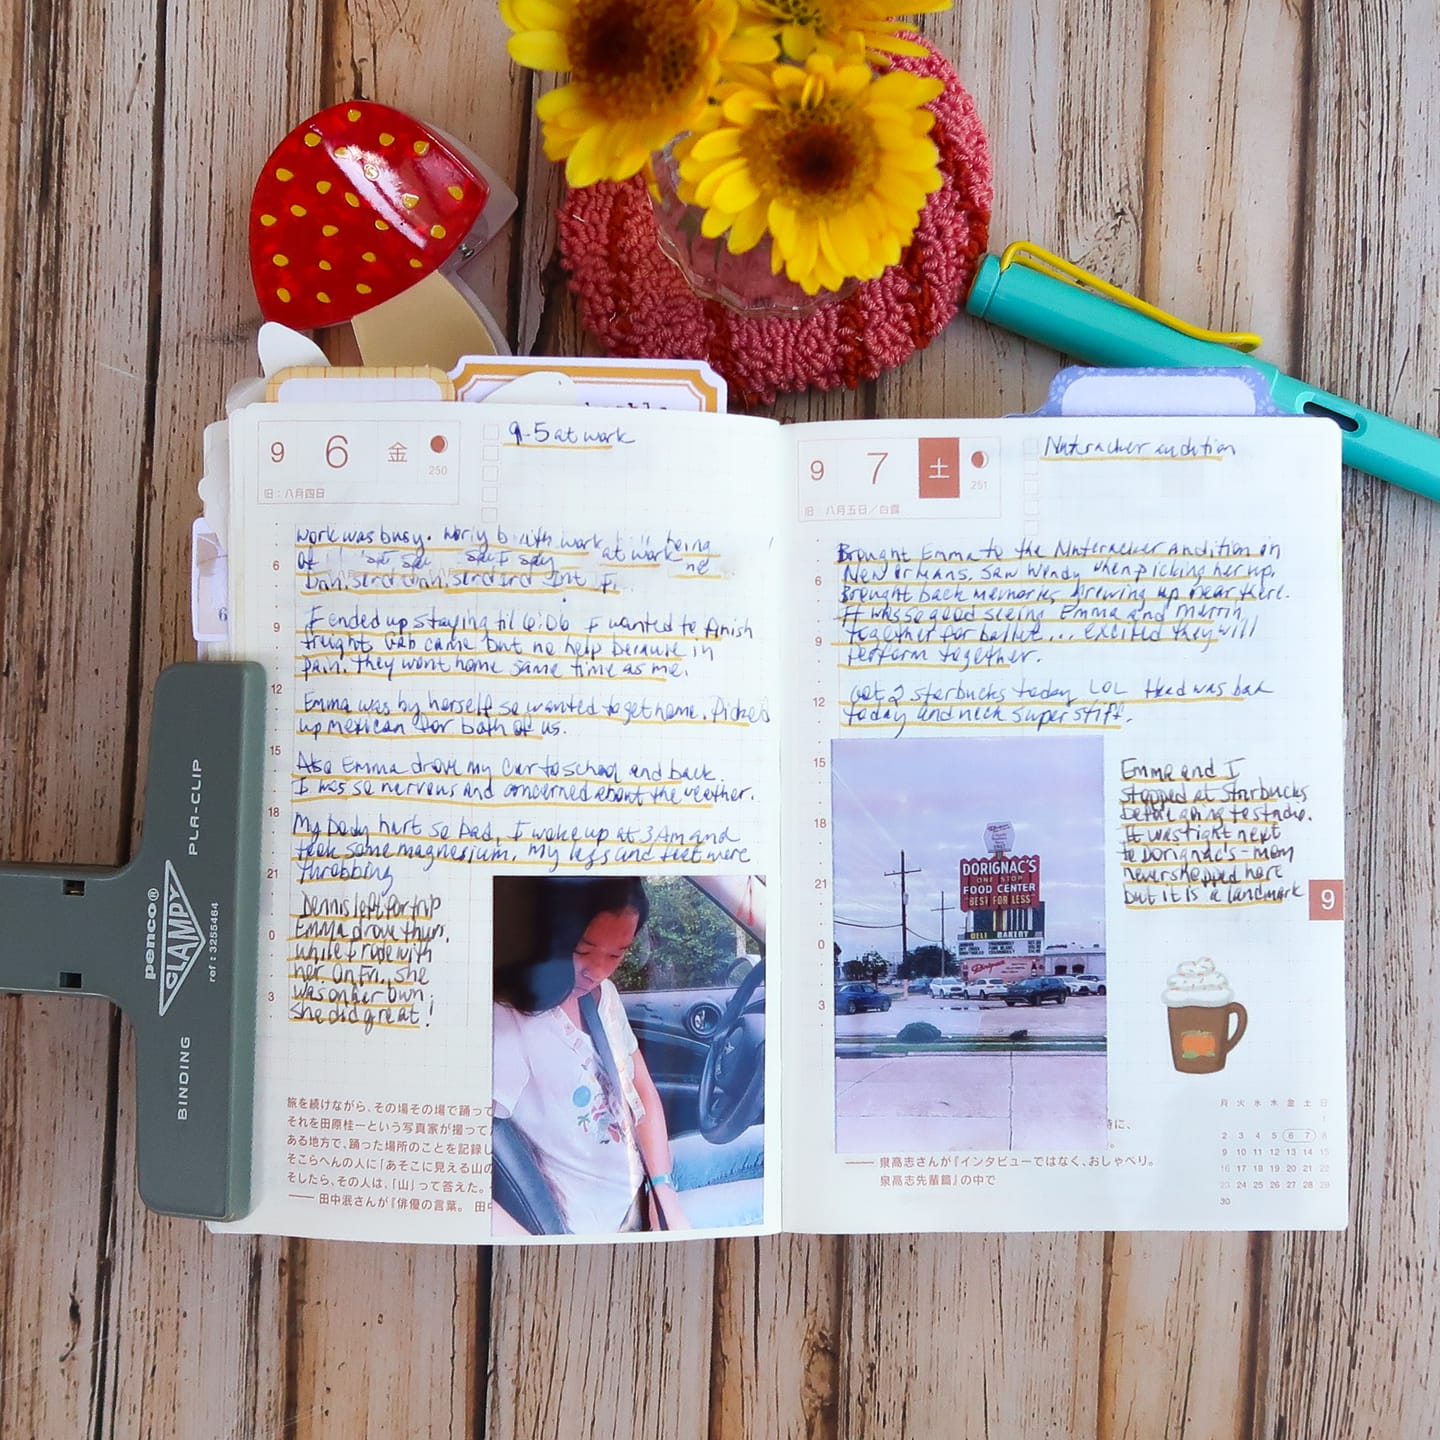 9 6 金
250
旧：八月四日
9-5 at work
work was busy.
at work being
I ended up staying til 6:06 I wanted to finish
freight Gab came but no help because in
pain. They went home same time as me.
Emma was by herself so wanted to get home. Picked
up mexican for both of us.
Also Emma drove my car to school and back.
I was so nervous and concerned about the weather.
My body hurt so bad, I woke up at 3 Am and
took some magnesium. My legs and feet were
throbbing
Dennis left for trip
Emma drove thurs.
while I rode with
her. On Fri, she
was on her own;
she did great!
6
9
12
15
18
21
0
3
旅を続けながら、その場その場で踊って
それを田原桂一という写真家が撮って
ある地方で、踊った場所のことを記録し
そこらへんの人に「あそこに見える山の
そしたら、その人は、「山」って答えた。
—— 田中泯さんが『俳優の言葉。 田中
9 7 土
251
旧：八月五日／白露
Nutcracker audition
Brought Emma to the Nutcracker Audition in
New Orleans. Saw Wendy when picking her up.
Brought back memories growing up near there.
It was so good seeing Emma and Merrin
together for ballet... excited they will
perform together.
Got 2 starbucks today LOL Head was bad
today and neck super stiff.
Emma and I
stopped at Starbucks
before going to studio.
It was right next
to Dorignac's - mom
never shopped here
but it is a landmark
6
9
12
15
18
21
0
3
DORIGNAC'S
ONE STOP
FOOD CENTER
"BEST FOR LESS"
DELI BAKERY
9
—— 泉高志さんが『インタビューではなく、おしゃべり。
泉高志先輩篇』の中で
月 火 水 木 金 土 日
1
2 3 4 5 6 7 8
9 10 11 12 13 14 15
16 17 18 19 20 21 22
23 24 25 26 27 28 29
30
penco®
CLAMPY
PLA-CLIP
ref : 3255464
BINDING